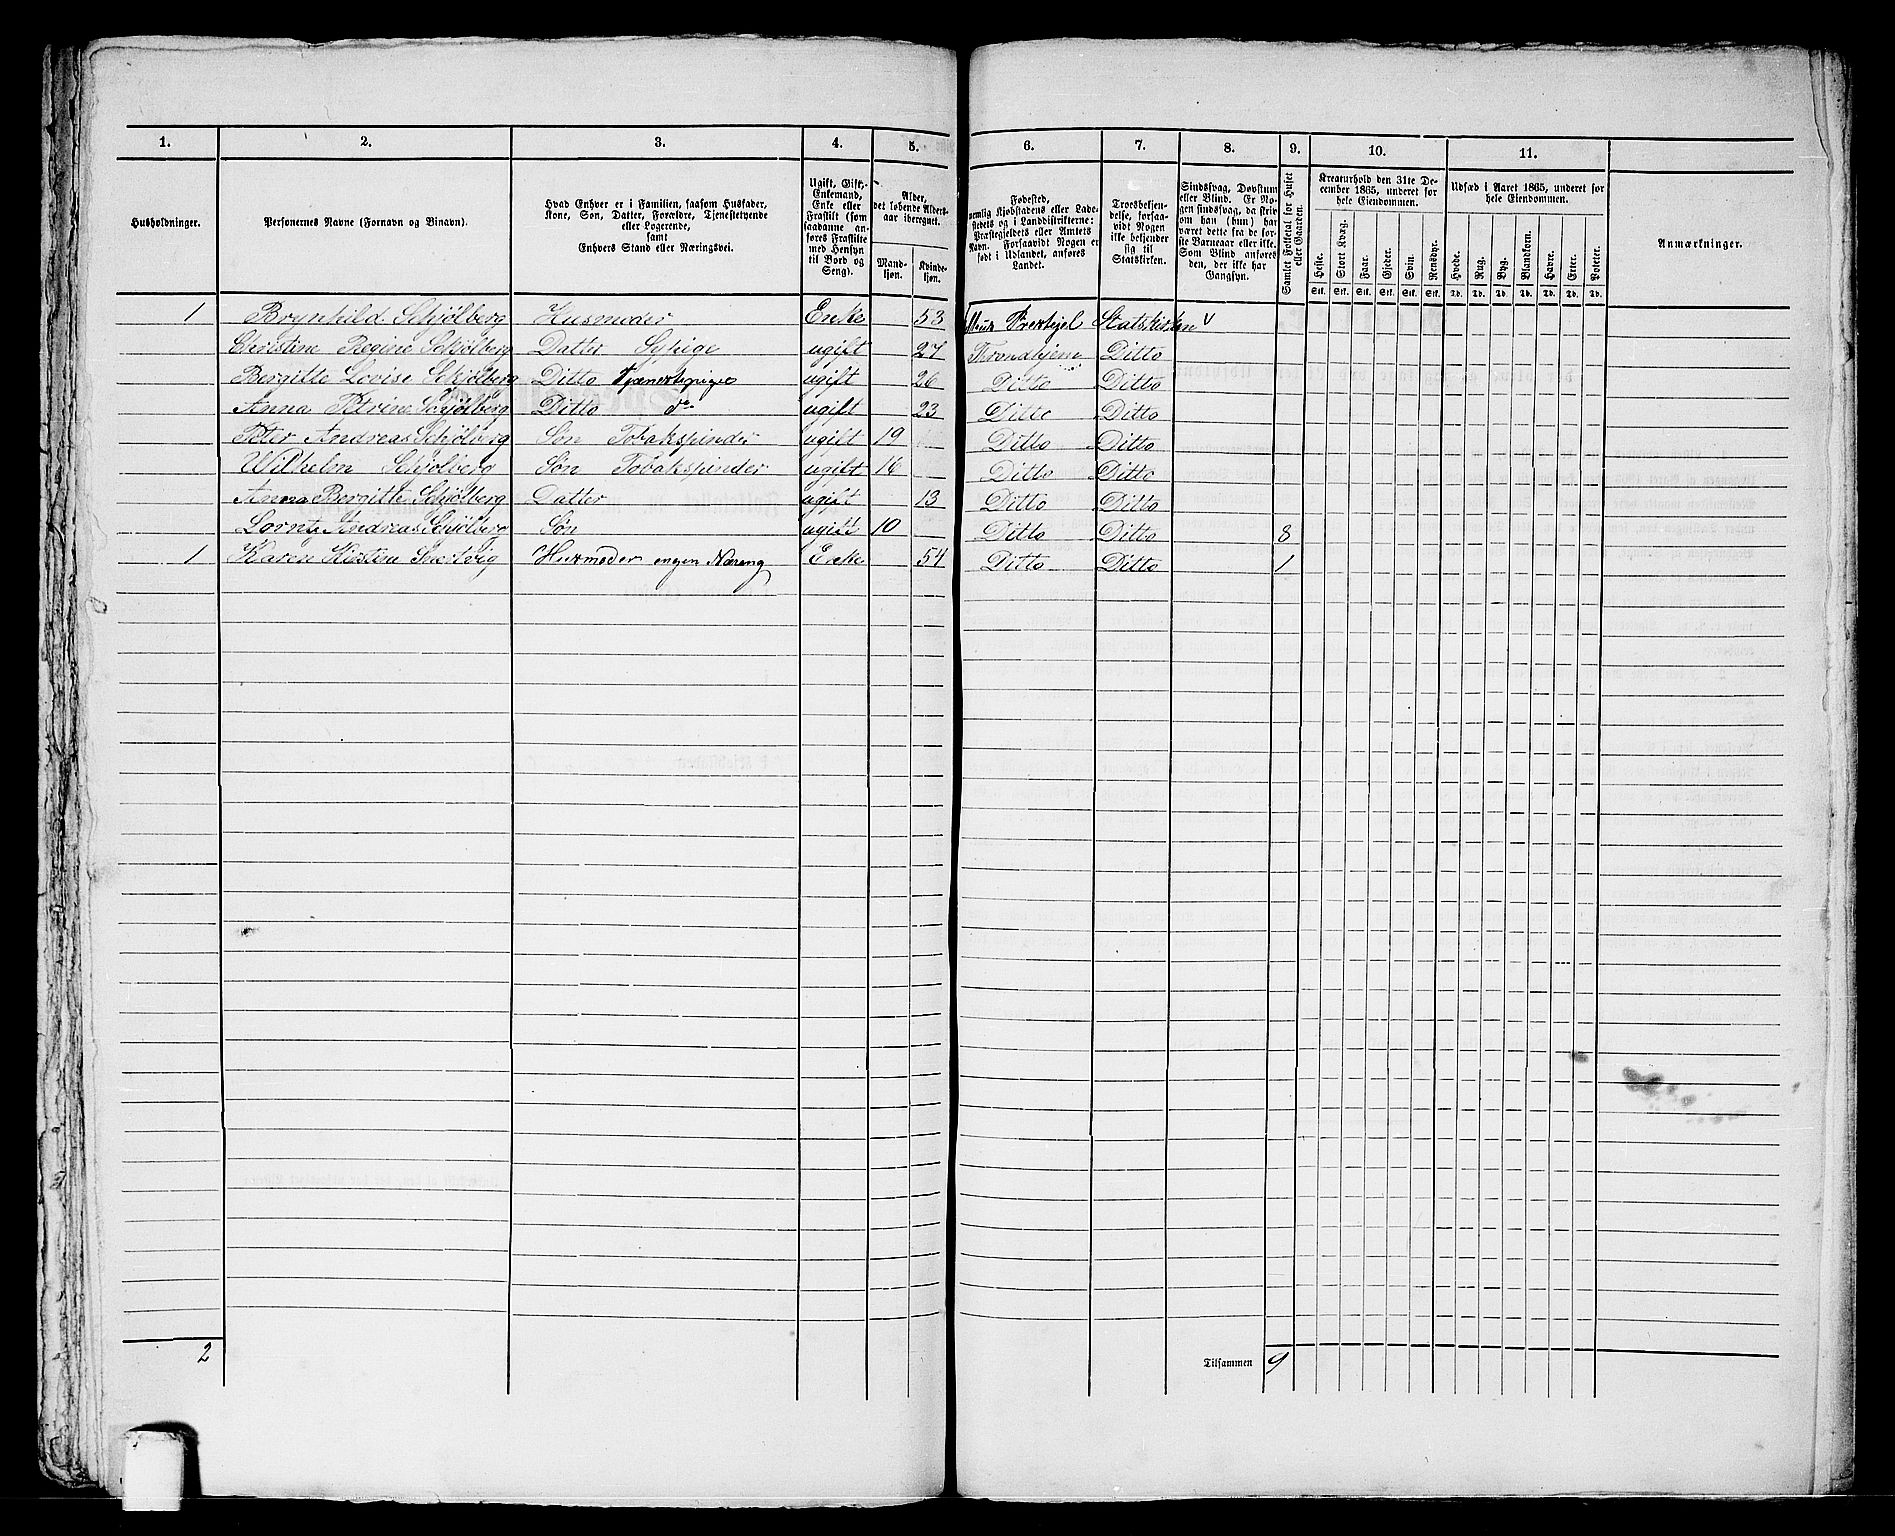 1. 2. 3. 4. 5. 6. 7. 8. 9. 10. 11.
Husholdninger.
Personernes Navne (Fornavn og Binavn).
Hvad Enhver er i Familien, saasom Husfader,
Kone, Søn, Datter, Forældre, Tjenestetyende
eller Logerende,
samt
Enhvers Stand eller Næringsvei.
Ugift, Gift,
Enkemand,
Enke eller
Fraskilt (som
saadanne an-
føres Fraskilte
med Hensyn
til Bord og
Seng).
Alder,
det løbende Alders-
aar iberegnet.
Mand-
kjøn.
Kvinde-
kjøn.
Fødested,
nemlig Kjøbstadens eller Lade-
stedets og i Landdistrikterne:
Præstegjeldets eller Amtets
Navn. Forsaavidt Nogen er
født i Udlandet, anføres
Landet.
Troesbekjen-
delse, forsaa-
vidt Nogen
ikke bekjender
sig til
Statskirken.
Sindssvag, Døvstum
eller Blind. Er No-
gen sindssvag, da skriv
om han (hun) har
været dette fra de før-
ste Barneaar eller ikke.
Som Blind anføres
den, der ikke har
Gangsyn.
Samlet Folketal for Huset
eller Gaarden.
Kreaturhold den 31te De-
cember 1865, underet for
hele Eiendommen.
Heste. Stort Kvæg. Faar. Gjeder. Svin. Rensdyr.
Stk. Stk. Stk. Stk. Stk. Stk.
Udsæd i Aaret 1865, underet for
hele Eiendommen.
Hvede. Rug. Byg. Blandkorn. Havre. Erter. Poteter.
Td. Td. Td. Td. Td. Td. Td.
Anmærkninger.
1 Brynhild Schjølberg Husmoder Enke 53 Statskirken
Christine Regine Schjølberg Datter Sypige ugift 27 Trondhjem Ditto
Bergitte Lovise Schjølberg Ditto ugift 26 Ditto Ditto
Anna Petrine Schjølberg Ditto do ugift 23 Ditto Ditto
Peter Andreas Schjølberg Søn Tobakspinder ugift 19 Ditto Ditto
Wilhelm Schjølberg Søn Tobakspinder ugift 16 Ditto Ditto
Anna Bergitte Schjølberg Datter ugift 13 Ditto Ditto
Andreas Schjølberg Søn ugift 10 Ditto Ditto 8
1 Karen Kirstine Husmoder ingen Næreng Enke 54 Ditto Ditto 1
2 Tilsammen 9